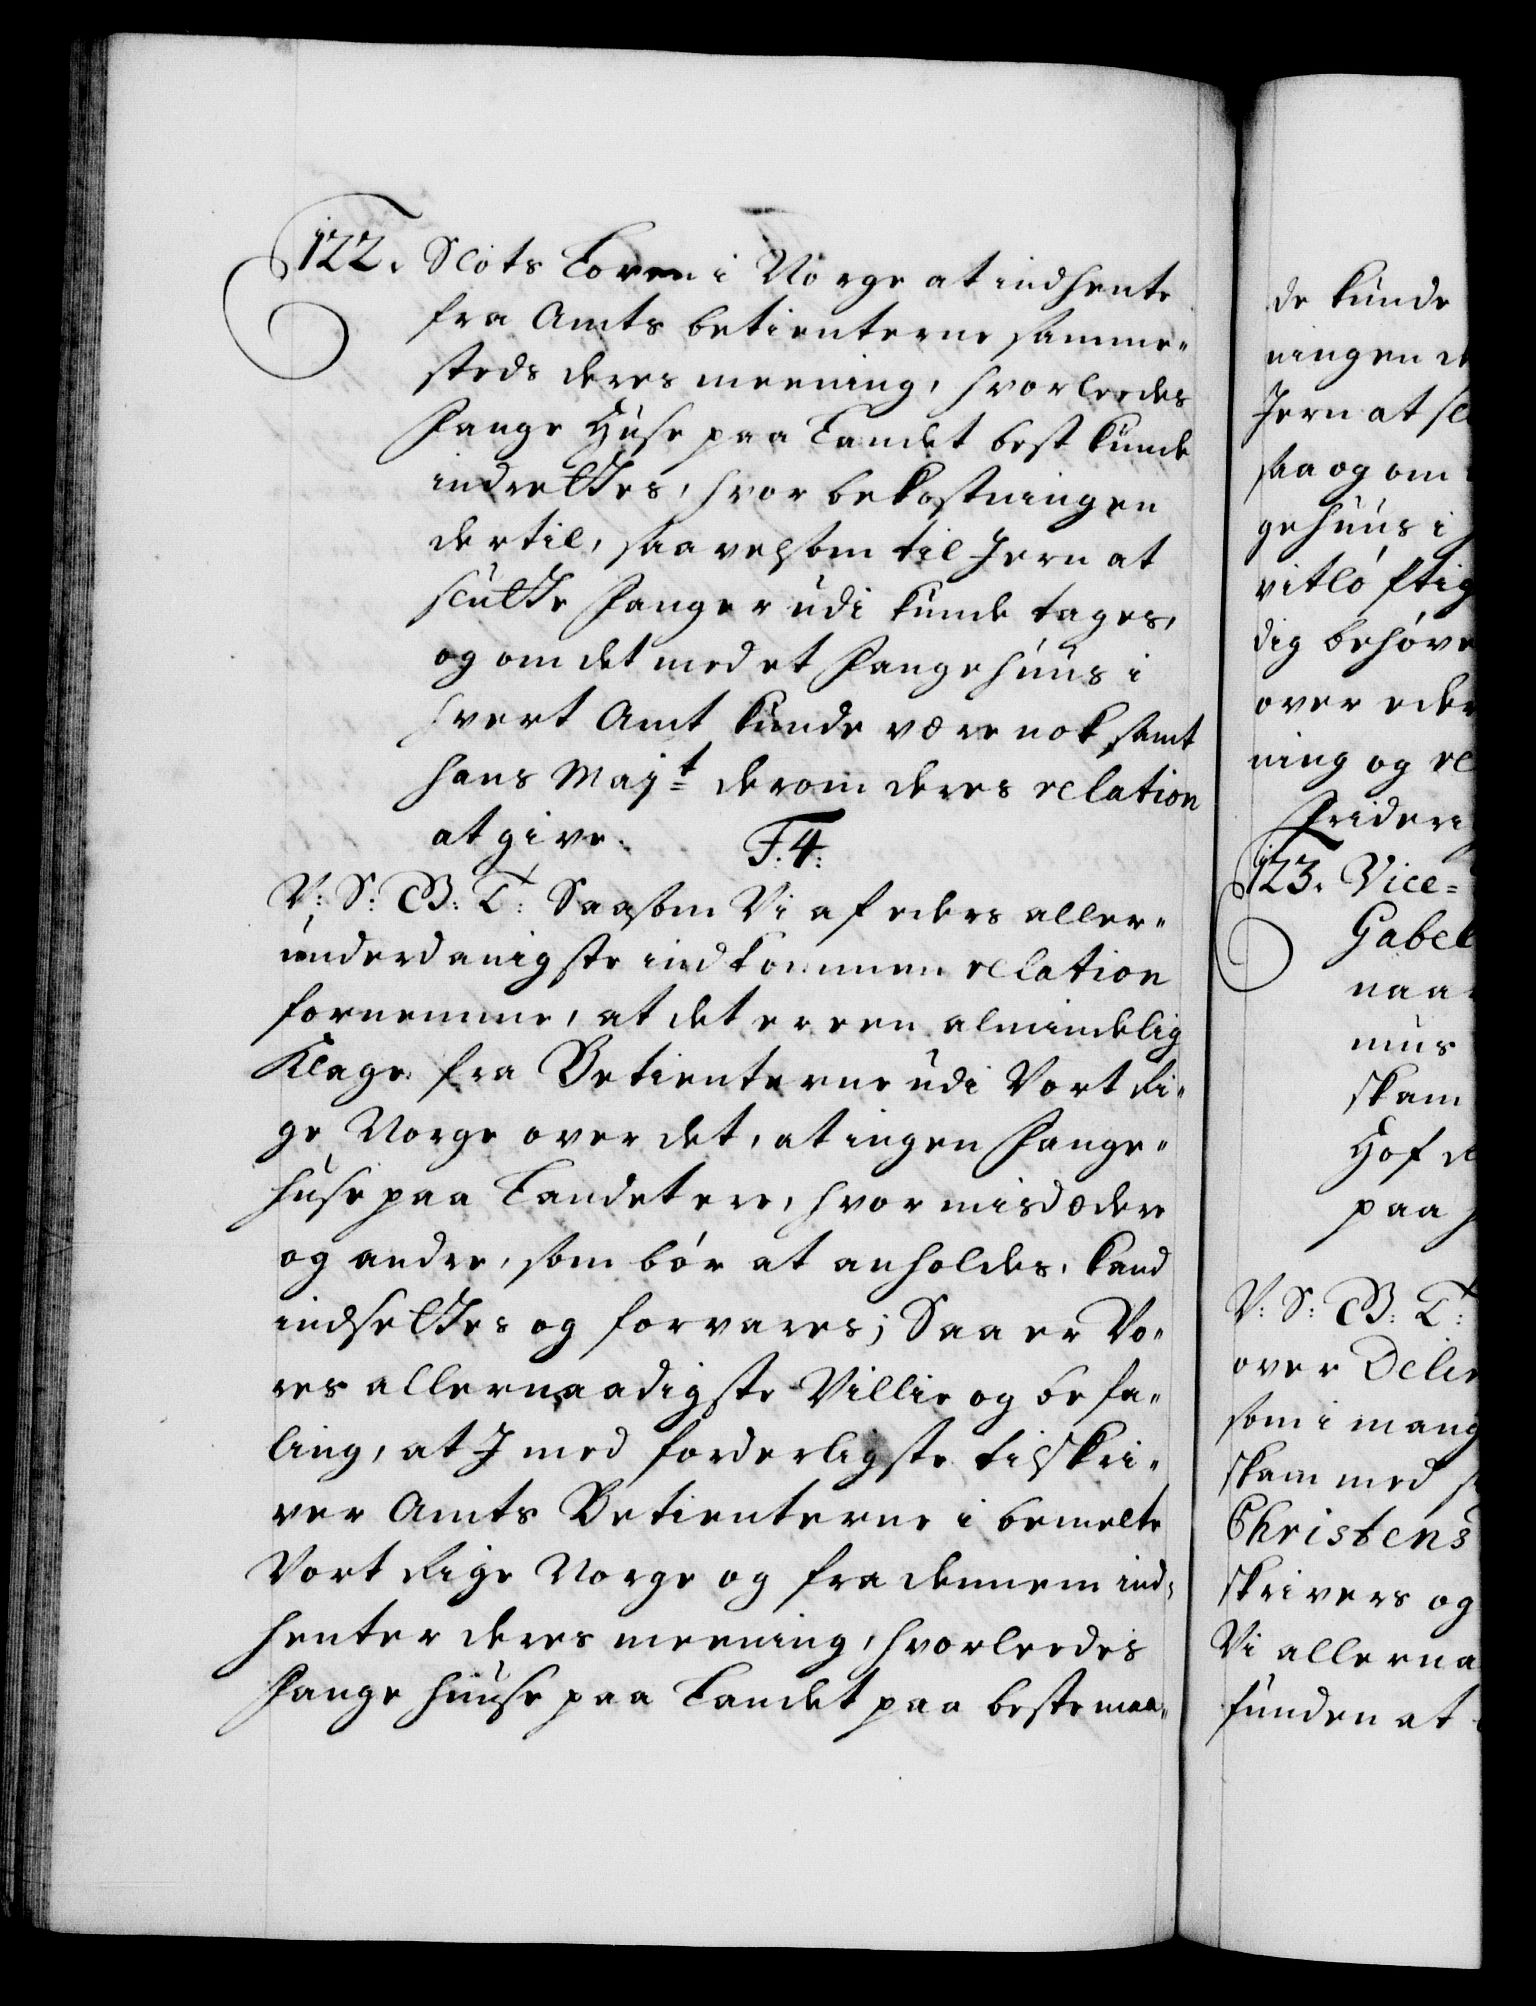 122. Slots Loven i Norge at indhente
fra Amts betienterne samme-
steds deres meening, hvorledes
Fange Huse paa Landet best kunde
indrettes, hvor bekostningen
dertil, saavelsom til Jern at
slutte Fanger udi kunde tages,
og om det med et Fangehuus i
hvert Amt kunde være nok samt
hans Mayt derom deres relation
at give.
F. 4.
V: S: G: T: Saasom Vi af eders aller-
underdanigste indkommen relation
fornemme, at det er een almindelig
Klage fra Betienterne udi Vort Ri-
ge Norge over det, at ingen Fange-
huse paa Landet ere, hvor misdædere
og andre, som bør at anholdes, kand
indsettes og forvares; Saa er Vo-
res allernaadigste Villie og befa-
ling, at I med forderligste tilskri-
ver Amts Betienterne i bemelte
Vort Rige Norge og fra dennem ind-
henter deres meening, hvorledes
Fange huuse paa Landet paa beste maa-
de kunde
ningen de
Jern at sl
saa og om
gehuus i
vitløftig
dig behøve
over eder
ning og re
Frideri
123. Vice-
Gabel
naa
mus
skam
Hof de
paa
V: S: G: T:
over Delin
som i mang
skam med
Christens
skrivers og
Vi allerna
funden at